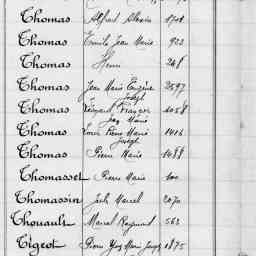 Thomas Alfred Alexis 1701
Thomas Emile Jean Marie 922
Thomas Henri 268
Thomas Jean Marie Eugène Joseph 2597
Thomas Edouard François Jag Marie 2058
Thomas Louis Pierre Marie Joseph 1416
Thomas Pierre Marie 1488
Thomasset Pierre Marie 100
Thomassin Jules Marcel 2070
Thouault Marcel Raymond 563
Tigeot Pierre Yves Marie Joseph 1875